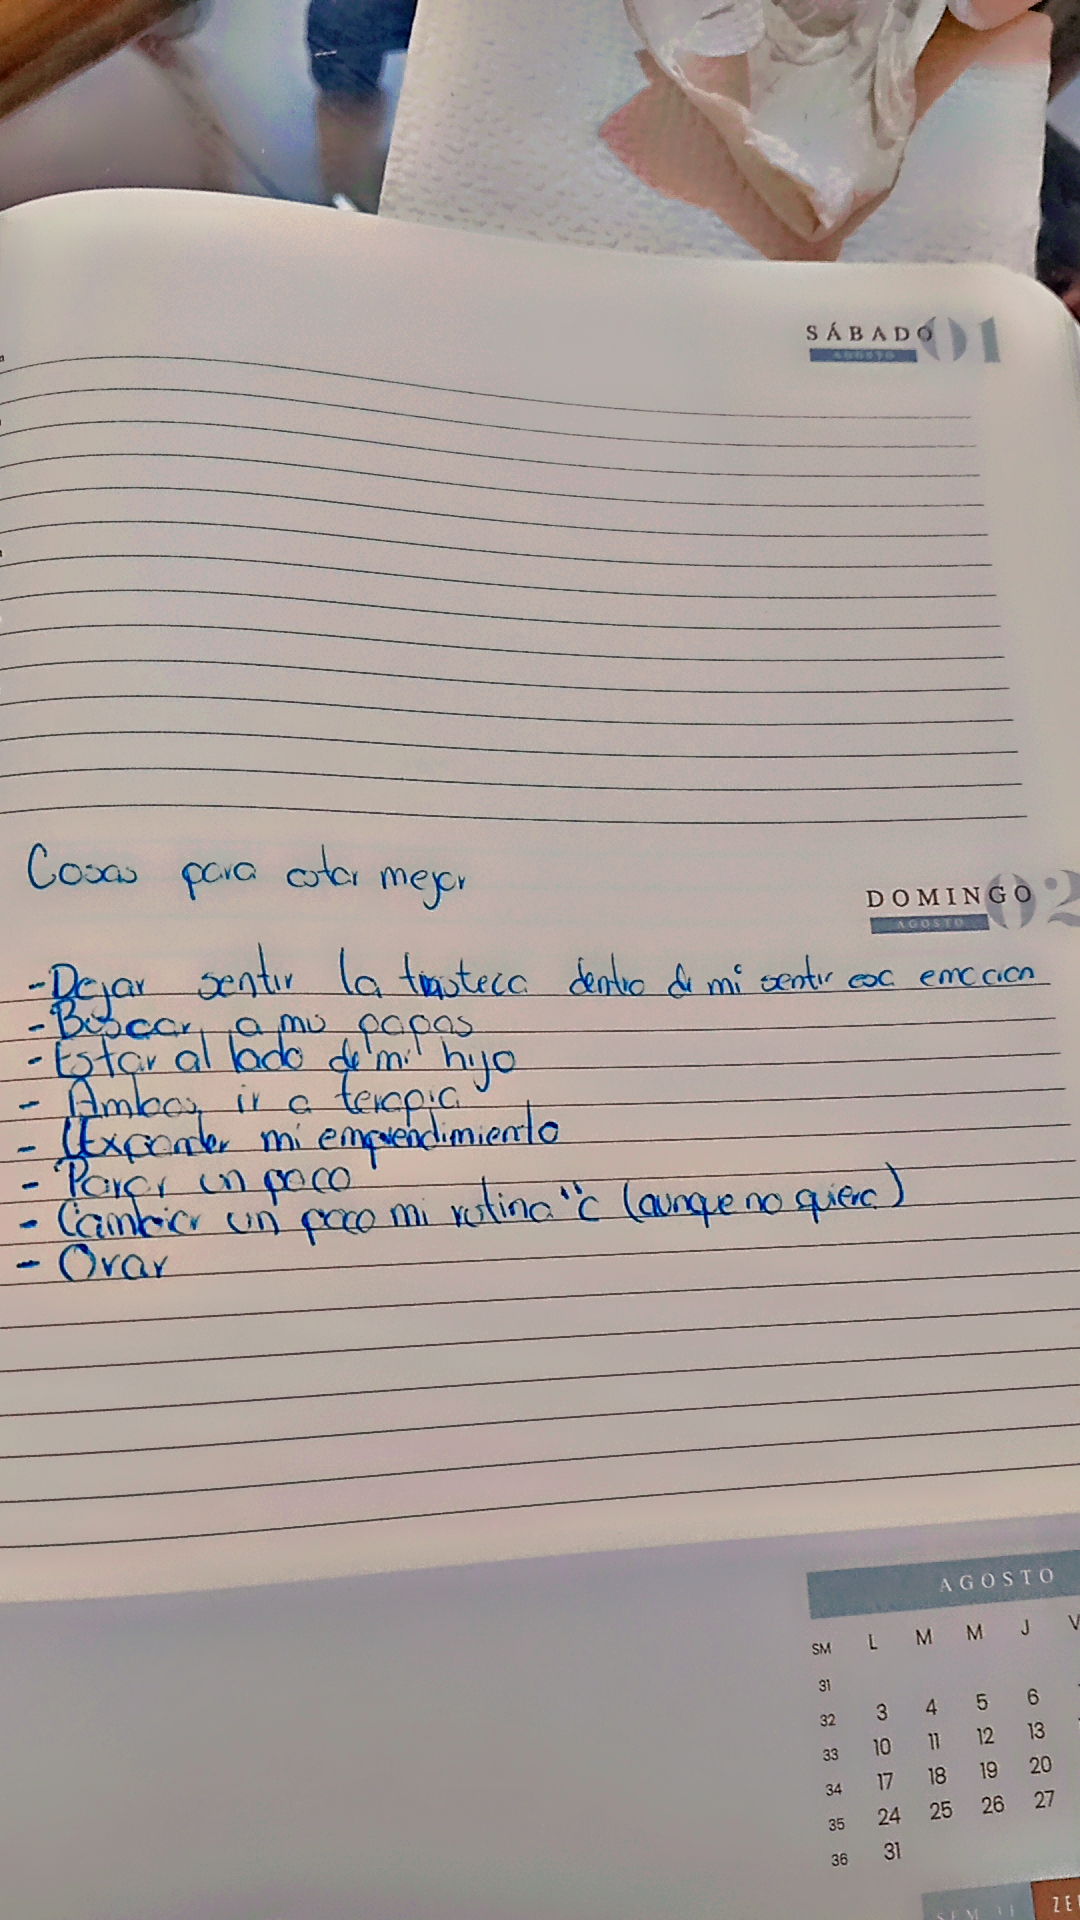 SÁBADO 01
AGOSTO
Cosas para estar mejor
DOMINGO 02
AGOSTO
- Dejar sentir la tristeza dentro de mi sentir esa emocion
- Buscar a mis papas
- Estar al lado de mi hijo
- Ambos ir a terapia
- Expander mi emprendimiento
- Parar un poco
- Cambiar un poco mi rutina (aunque no quiera)
- Orar
AGOSTO
SM L M M J V
31
32 3 4 5 6
33 10 11 12 13
34 17 18 19 20
35 24 25 26 27
36 31
SEM 31